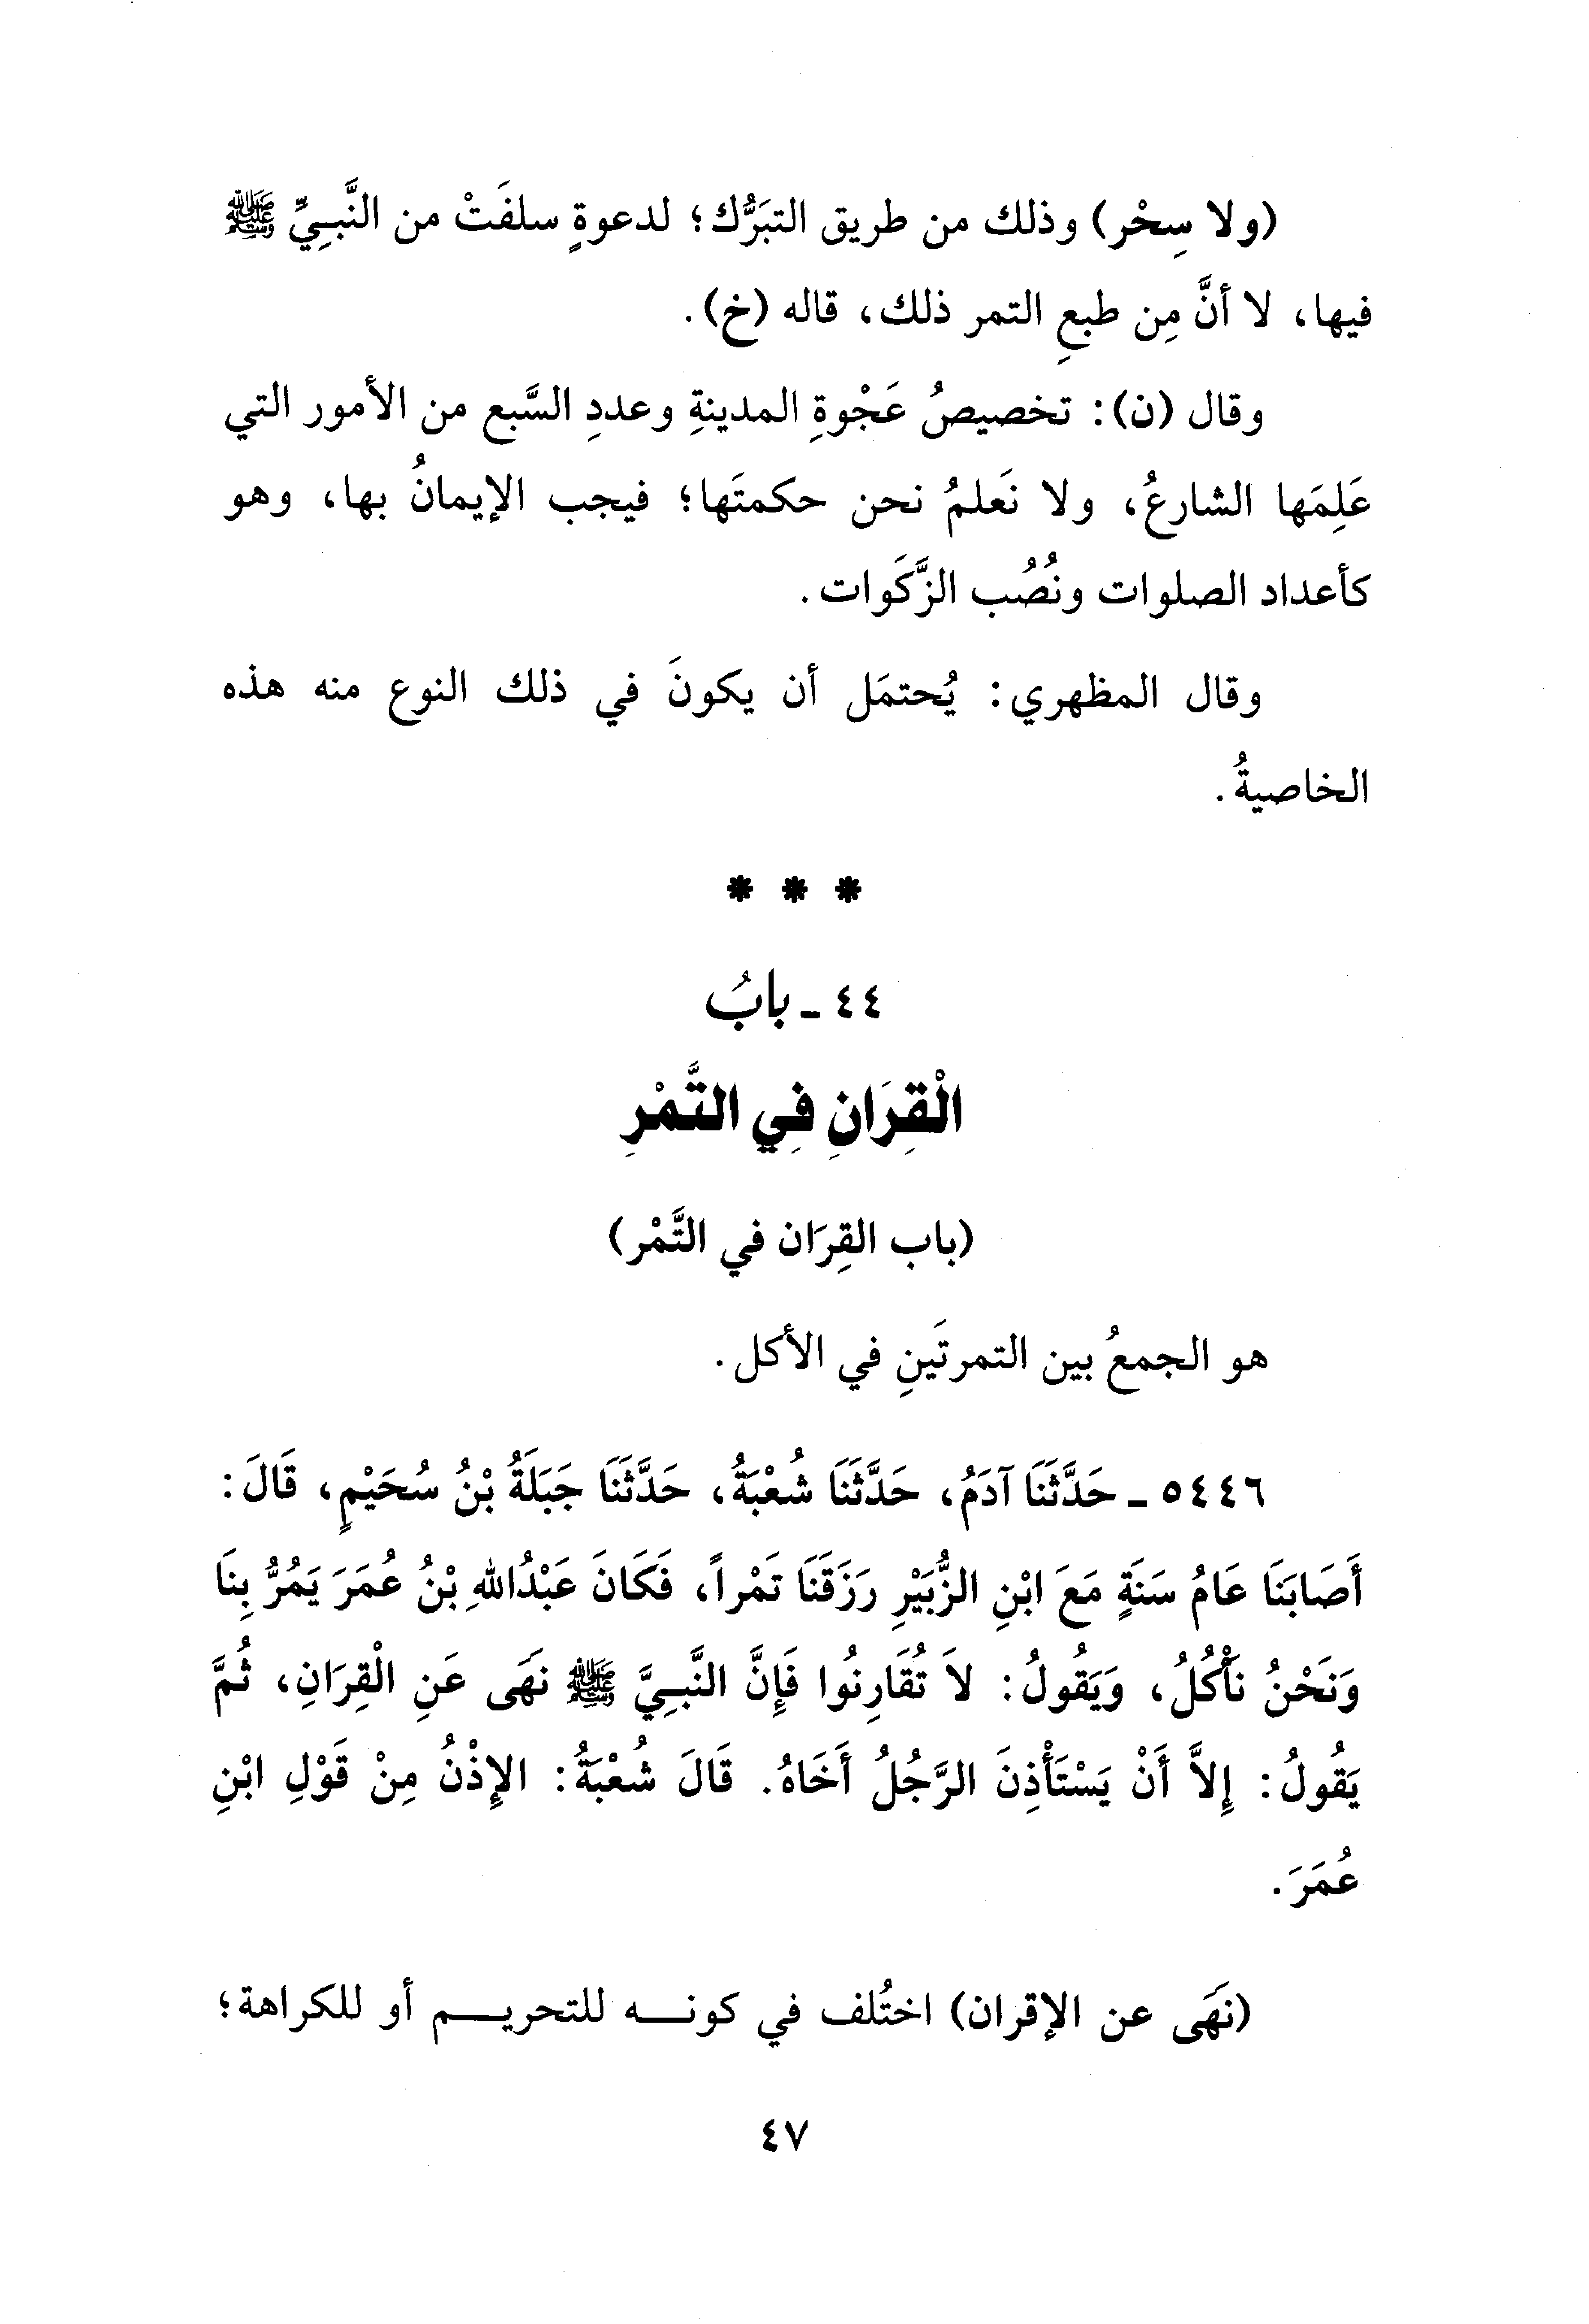 (ولا سِحْر) وذلك من طريق التبَرُّك؛ لدعوةٍ سلفَتْ من النَّبِيِّ ﷺ
فيها، لا أنَّ مِن طبعِ التمر ذلك، قاله (خ).
وقال (ن): تخصيصُ عَجْوةِ المدينةِ وعددِ السَّبع من الأمور التي
عَلِمَها الشارعُ، ولا نَعلمُ نحن حكمتَها؛ فيجب الإيمانُ بها، وهو
كأعداد الصلوات ونُصُب الزَّكَوات.
وقال المظهري: يُحتمَل أن يكونَ في ذلك النوع منه هذه
الخاصيةُ.
* * *
٤٤ - بابُ
الْقِرَانِ فِي التَّمْرِ
(باب القِرَان في التَّمْر)
هو الجمعُ بين التمرتَينِ في الأكل.
٥٤٤٦ - حَدَّثَنَا آدَمُ، حَدَّثَنَا شُعْبَةُ، حَدَّثَنَا جَبَلَةُ بْنُ سُحَيْمٍ، قَالَ:
أَصَابَنَا عَامُ سَنَةٍ مَعَ ابْنِ الزُّبَيْرِ رَزَقَنَا تَمْراً، فَكَانَ عَبْدُاللهِ بْنُ عُمَرَ يَمُرُّ بِنَا
وَنَحْنُ نَأْكُلُ، وَيَقُولُ: لاَ تُقَارِنُوا فَإِنَّ النَّبِيَّ ﷺ نَهَى عَنِ الْقِرَانِ، ثُمَّ
يَقُولُ: إِلاَّ أَنْ يَسْتَأْذِنَ الرَّجُلُ أَخَاهُ. قَالَ شُعْبَةُ: الإِذْنُ مِنْ قَوْلِ ابْنِ
عُمَرَ.
(نَهَى عن الإقران) اختُلف في كونـــه للتحريـــم أو للكراهة؛
٤٧